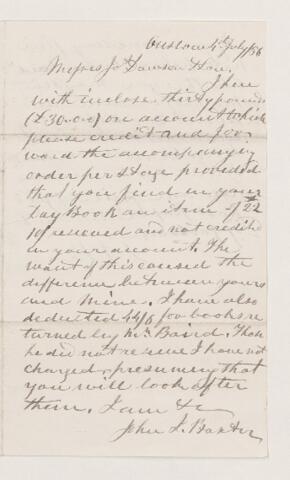 Onslow 4th July /56
Messrs Jas Dawson & Son,
I here
with inclose thirty pounds
(£30-0-0) on account which
please credit and for-
ward the accompanying
order per Stage provided
that you find in your
Day Book an item of £22
10/ received and not credited
in your account. The
want of this caused the
difference between yours
and mine. I have also
deducted 44/6 for books re
turned by Mr. Baird. Those
he did not receive I have not
charged, presuming that
you will look after
them. I am &c
John I. Baxter